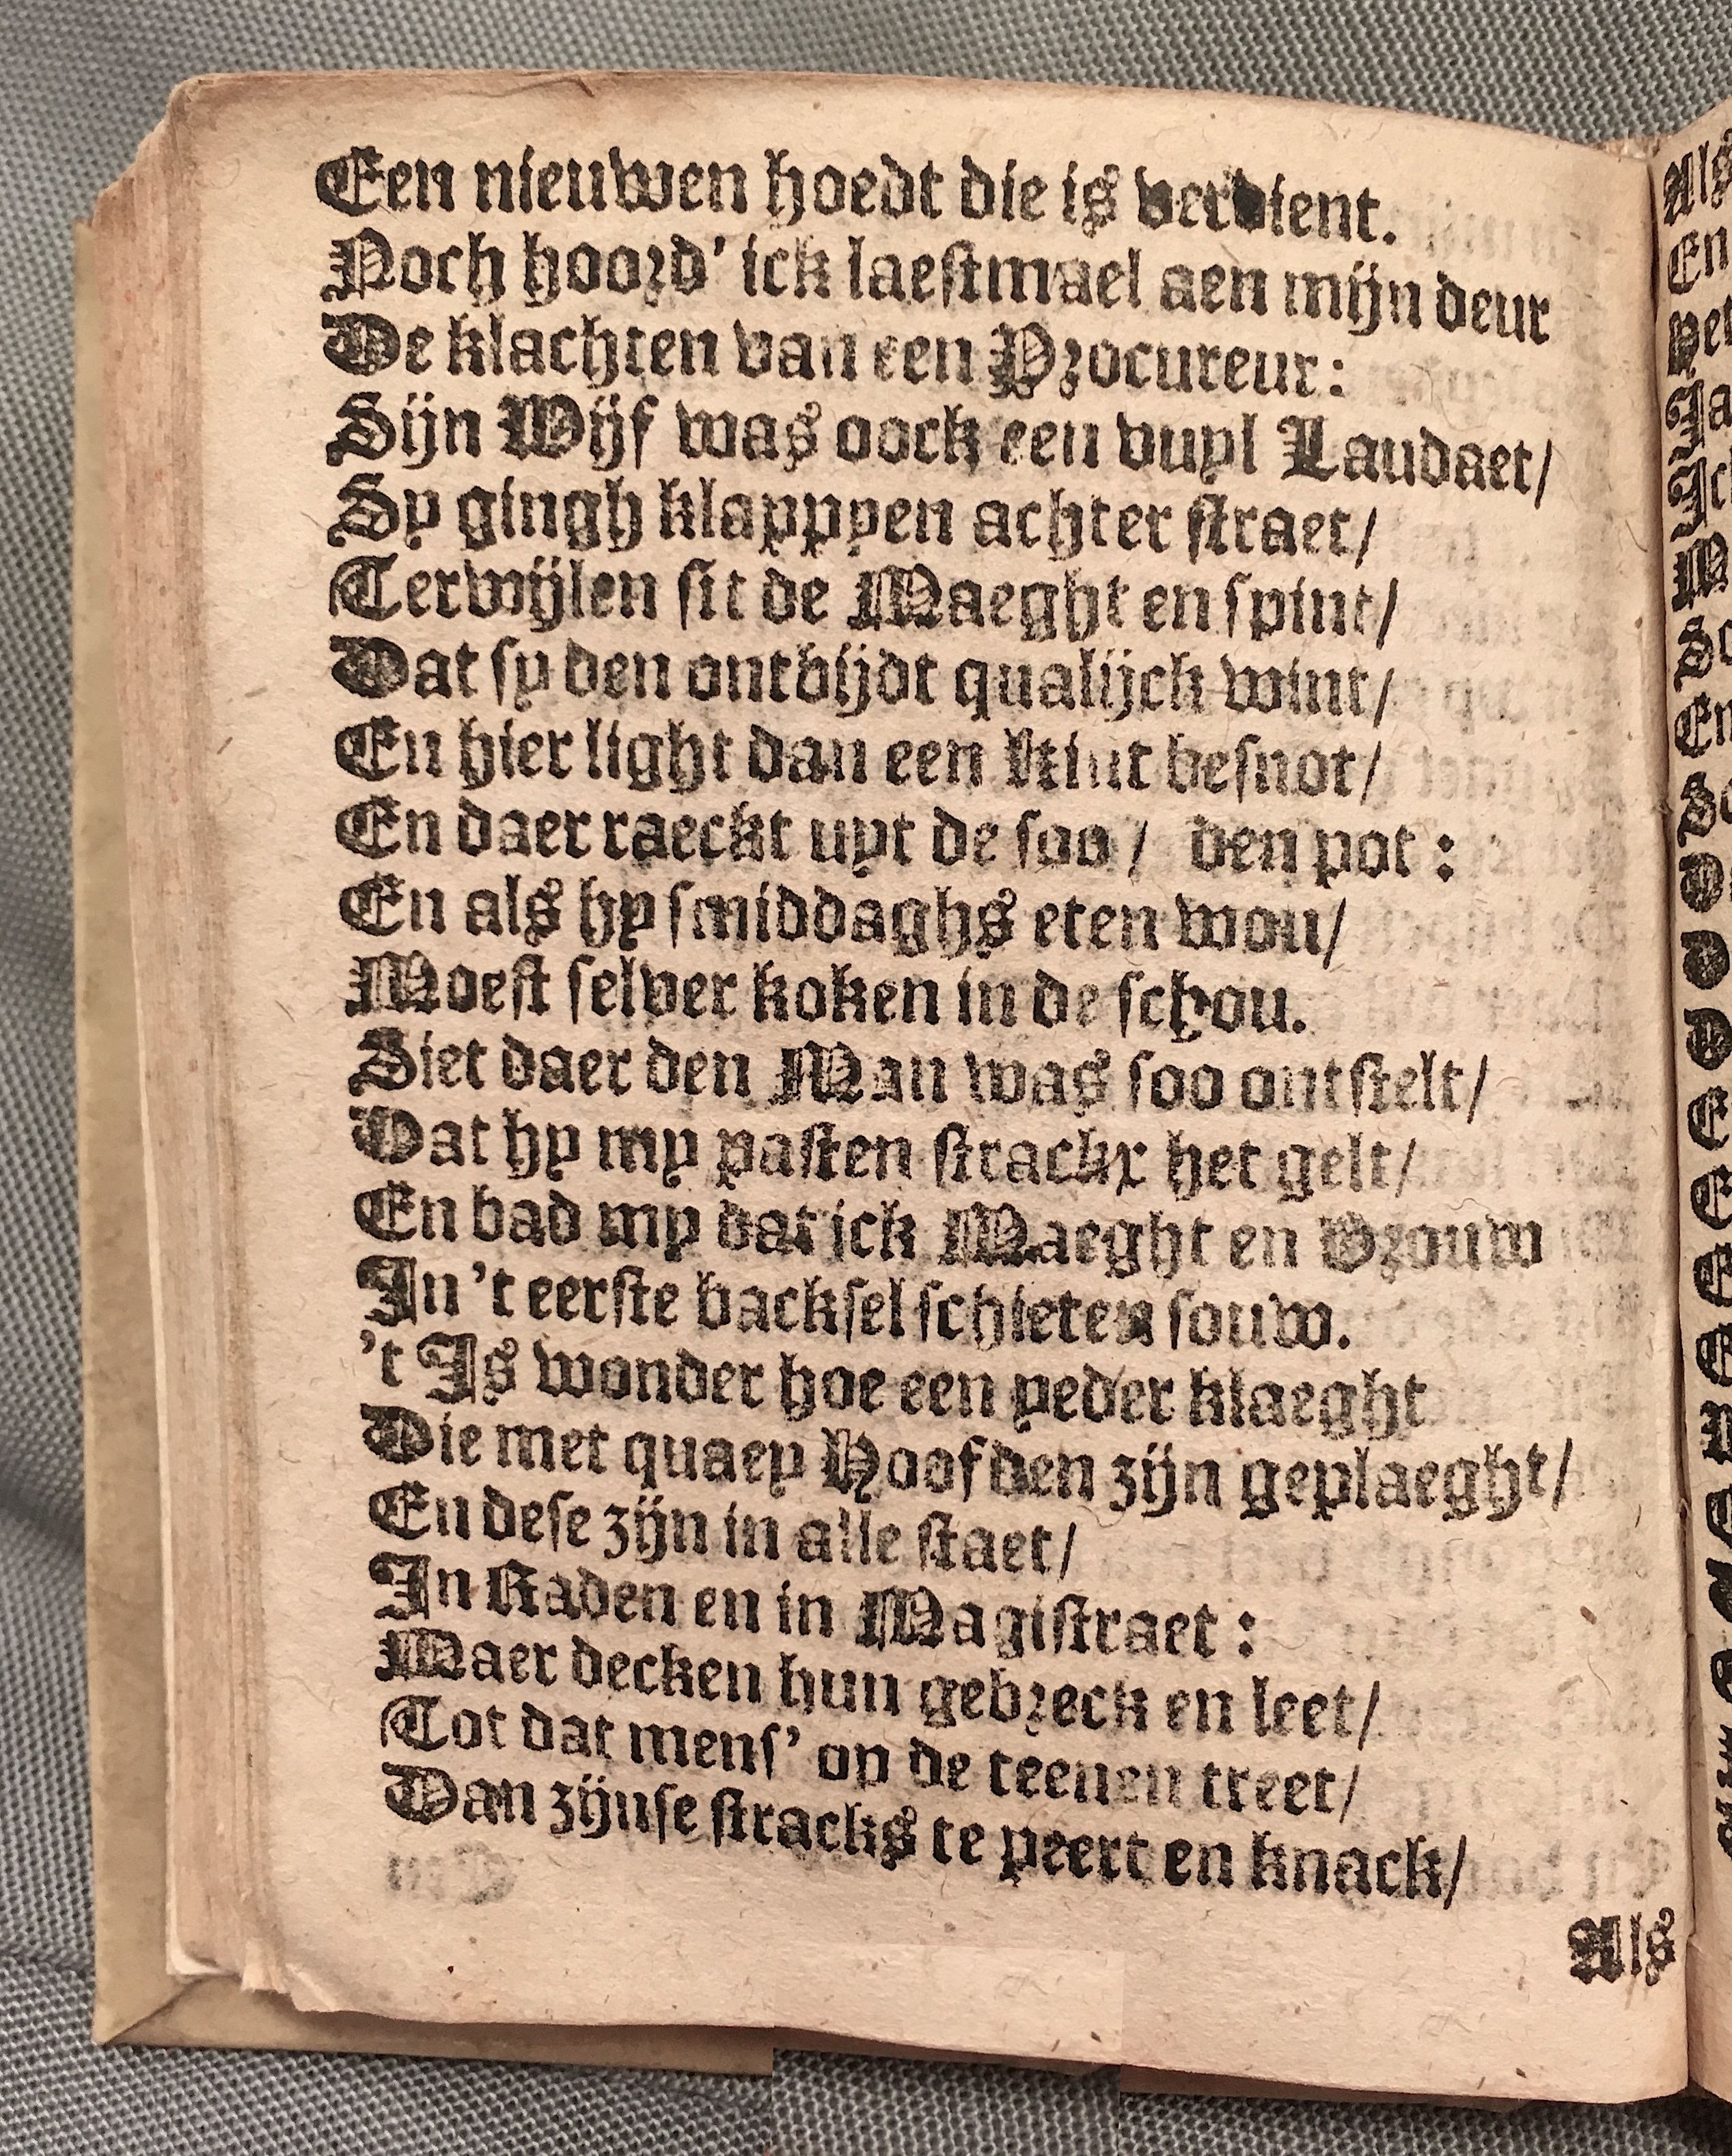 Een nieuwen hoedt die is verdient.
Noch hoord' ick laestmael aen mijn deur
De klachten van een Procureur:
Sijn Wijf was oock een vuyl Laudaet/
Sy gingh klappyen achter straet/
Terwijlen sit de Maeght en spint/
Dat sy den ontbijdt qualijck wint/
En hier light dan een Kint besnot/
En daer raeckt uyt de soo/ den pot:
En als hy smiddaghs eten wou/
Moest selver koken in de schou.
Siet daer den Man was soo ontstelt/
Dat hy my pasten strackx het gelt/
En bad my dat ick Maeght en Vrouw
In 't eerste backsel schieten souw.
't Is wonder hoe een yeder klaeght
Die met quaey Hoofden zijn geplaeght/
En dese zijn in alle staet/
In Raden en in Magistraet:
Maer decken hun gebreck en leet/
Tot dat mens' op de teenen treet/
Dan zijnse stracks te peert en knack/
Als